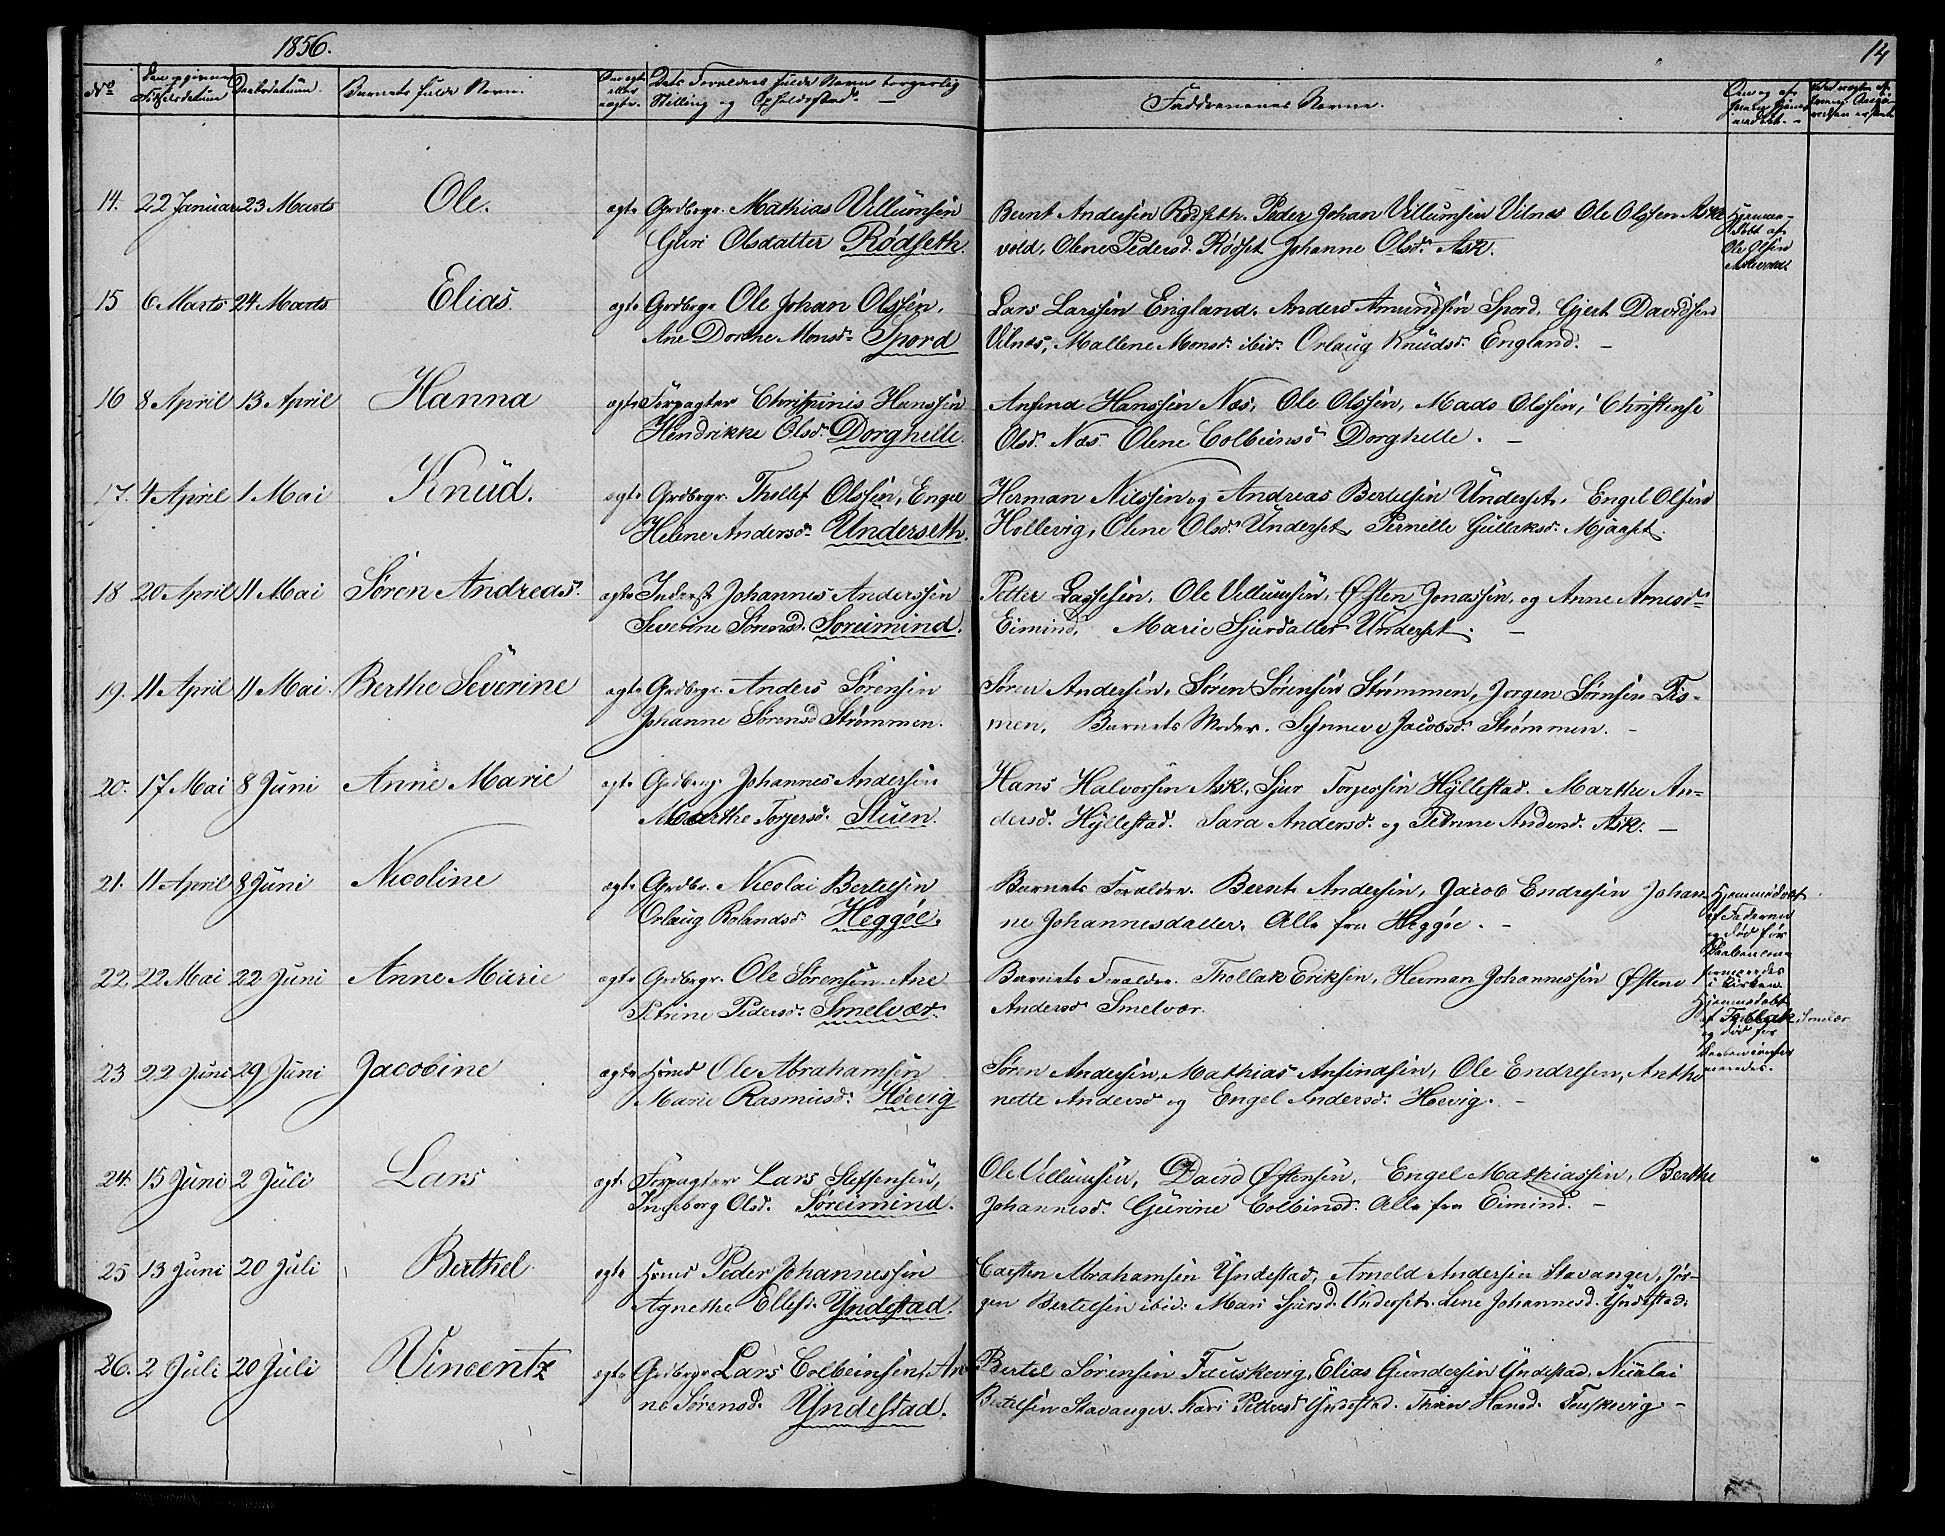 1856.
14
No
Daabsdatum.
Barnets fulde Navn.
Stilling og Opholdssted.
Faddrenenes Navne.
14. 22 Januar 23 Marts Ole. ægte Grdbrgr. Mathias Villumsen
Guri Olsdatter Rödseth.
Bernt Andersen Rödseth. Peder Johan Villumsen Vilnæs Ole Olssen Aske
vold, Olene Pedersd. Rödset Johanne Olsd. Ask.
Hjemme-
døbt af
Ole Olsen
Askevold.
15 6 Marts 24 Marts Elias. ægte Grdbrgr Ole Johan Olssen,
Ane Dorthe Monsd. Spord
Lars Larssen England. Anders Amundsen Spord. Gjert Davidsen
Vilnæs, Mallene Monsd. ibid. Orlaug Knudsd. England. —
16 8 April 13 April Hanna ægte Forpagter Hanssen
Hendrikke Olsd. Dorghelle.
Anfind Hanssen Næs, Ole Olssen, Mads Olssen, Christense
Olsd. Næs. Olene Colbeinsd Dorghelle. —
17. 4 April 1 Mai Knüd. ægte Grdbrgr. Thollef Olssen, Engel
Helene Andersd. Underseth.
Herman Nilssen og Andreas Bertelsen Underset, Engel Olsen
Hollevig, Olene Olsd. Underset, Pernelle Gullaksd. Mjaaset.
18 20 April 11 Mai Søren Andreas. ægte Inderst Johannes Anderssen
Severine Sørensd. Soreimind.
Petter Lassesen, Ole Villumsen, Østen Jonassen, og Anne Arnesd.
Eimind, Marie Sjurdatter Underset. —
19. 11 April 11 Mai. Berthe Severine ægte Grdbrgr. Anders Sørensen
Johanne Sørensd Strømmen.
Søren Andersen, Søren Sørensen Strømmen, Jørgen Sørnsen Tis-
men, Barnets Moder. Synneve Jacobsd. Strømmen. —
20. 17 Mai 8 Juni Anne Marie ægte Grdbrgr. Johannes Andersen
Marthe Torgersd. Stuen.
Hans Halvorsen Ask, Sjur Torgersen Hyllestad. Marthe An-
dersd. Hyllestad. Sara Andersd. og Petrine Andersd. Ask. —
21. 11 April 8 Juni Nicoline ægte Grdbr. Nicolai Bertelsen
Orlaug Rolandsd. Heggöe.
Barnets Forældre. Bernt Andersen, Jacob Endresen Johan
ne Johannesdatter, Alle fra Heggöe. —
Hjemmedøbt
af Faderen
og død før
i Kirken
22. 22 Mai 22 Juni Anne Marie ægte Grdbrgr. Ole Sörensen Ane
Petrine Pedersd. Smelvær.
Barnets Forældre. Thollak Eriksen, Herman Johannessen Østene
Andersd Smelvær.
Hjemmedøbt
af Thollak Smelvær
og død før
23 22 Juni 29 Juni Jacobine ægte Hsmd Ole Abrahamsen
Marie Rasmusd. Høevig
Søren Andersen, Mathias Anfindsen, Ole Endresen, Antho
nette Andersd og Engel Andersd. Høevig. —
24. 15 Juni 2 Juli Lars ægte Forpagter Lars Steffensen,
Ingeborg Olsd. Søreimind.
Ole Villumsen, David Østensen, Engel Mathiassen, Berthe
Johannesd. Gurine Colbinsd. Alle fra Eimind. —
25 13 Juni 20 Juli Berthel ægte Hsmd Peder Johannessen
Agnethe Ellefsd. Yndestad.
Carsten Abrahamsen Yndestad, Arnold Andersen Stavanger, Jør-
gen Bertelsen ibid. Mari Sjursd. Underset. Lene Johannesd. Yndestad.
26. 2 Juli 20 Juli Vincentz ægte Grdbrgr Lars Colbeinsen, An
ne Sørensd. Yndestad.
Bertel Sørensen Fauskevig, Elias Gundersen Yndestad, Nicolai
Bertelsen Stavanger. Kari Pedersd Yndestad. Hansd. Fauskevig —